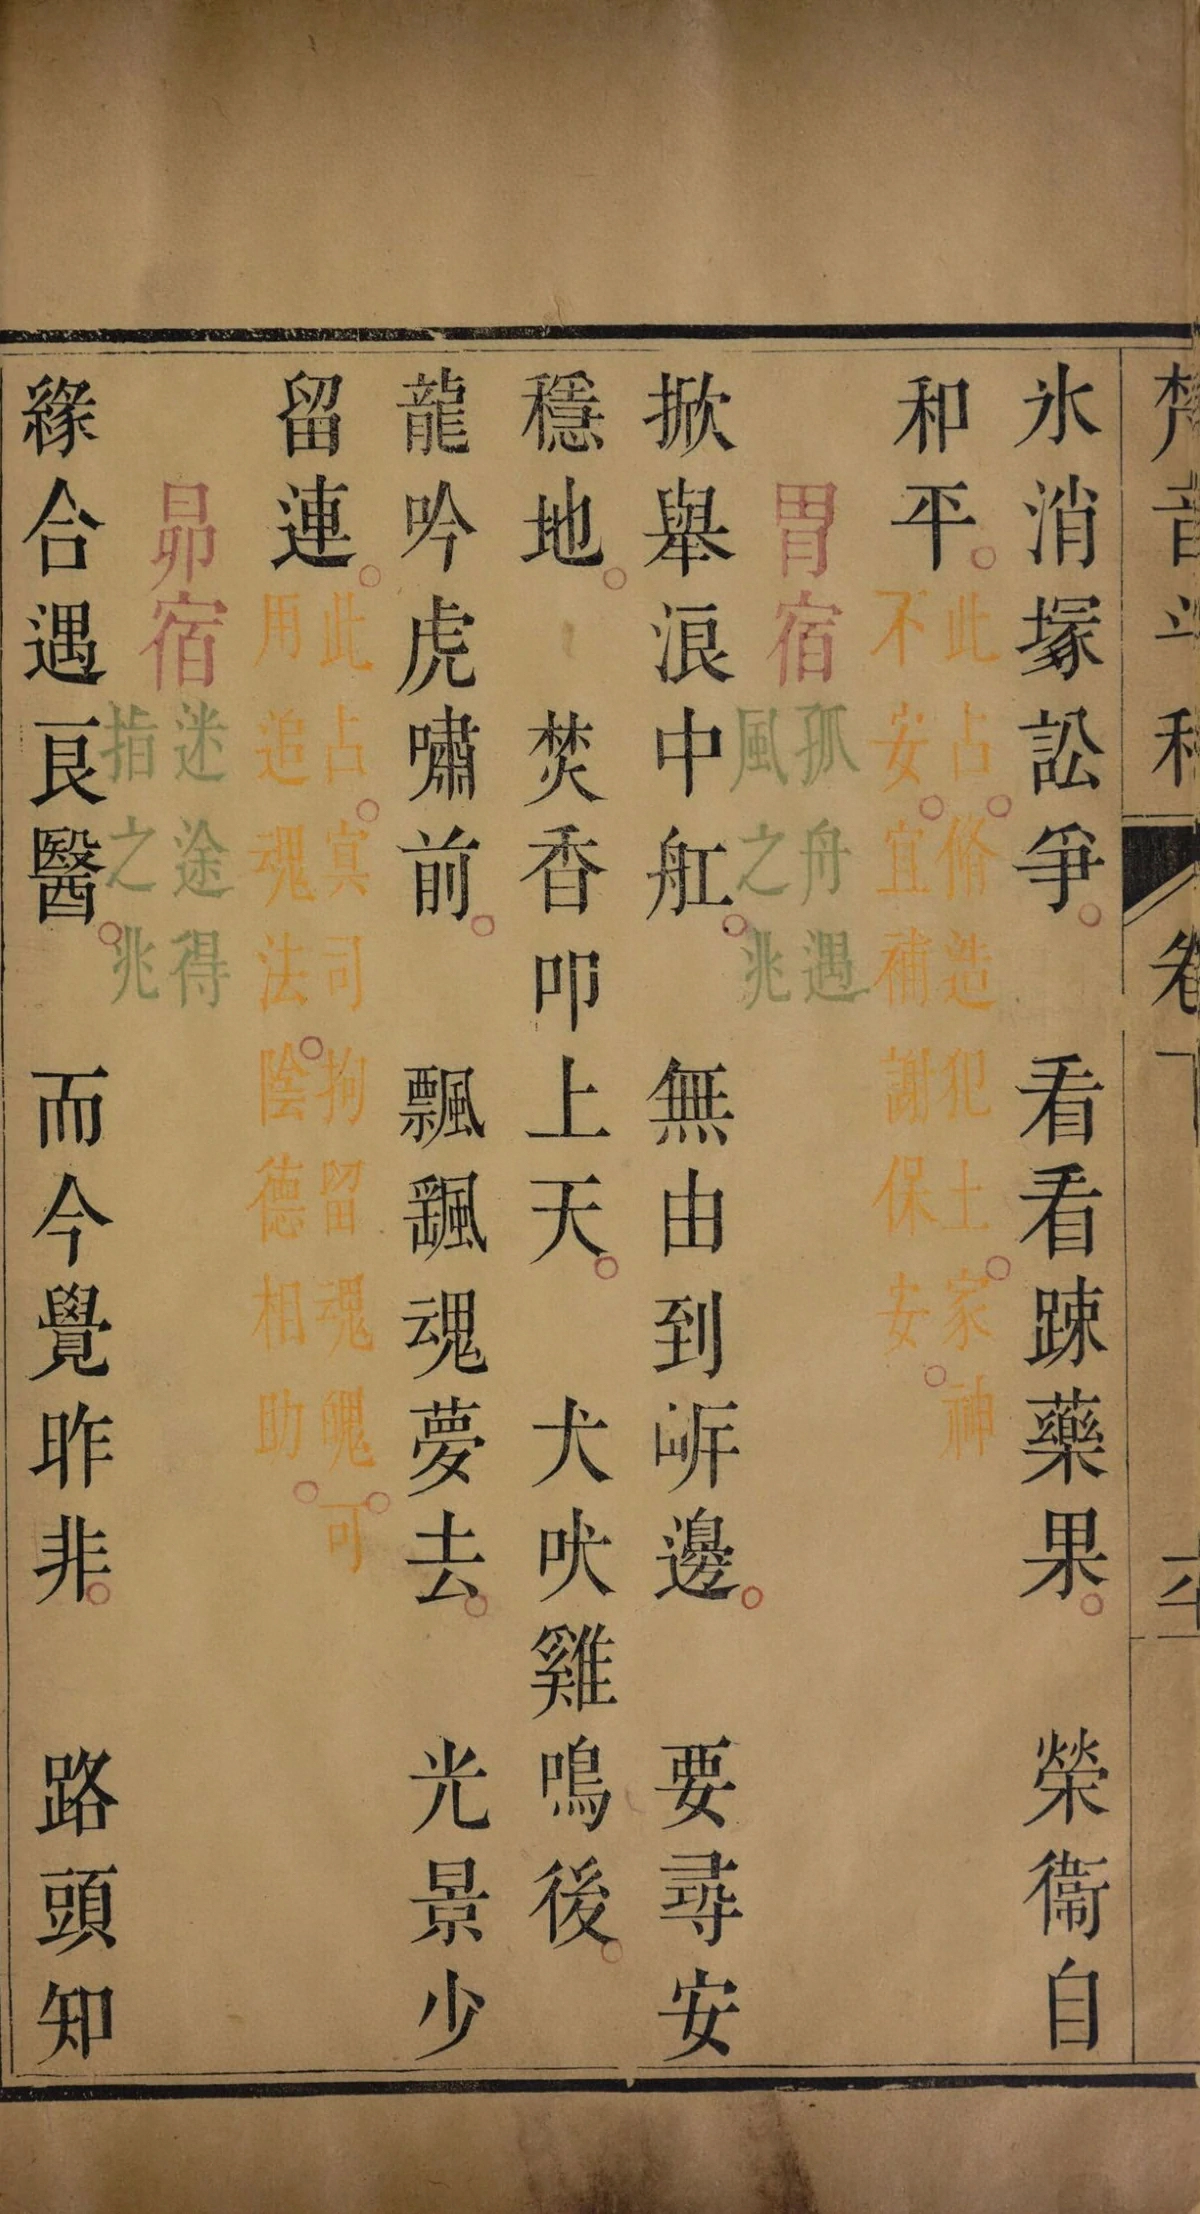 梵音斗科 卷下
氷消塚訟爭。 看看踈藥果。 榮衞自
和平。
此占。脩造犯土。家神
不安。宜補謝保安。
胃宿
孤舟遇
風之兆
掀舉浪中舡。 無由到㟁邊。 要尋安
穩地。 焚香叩上天。 犬吠雞鳴後。
龍吟虎嘯前。 飄飖魂夢去。 光景少
留連。
此占。寘司拘留魂魄。可
用追魂法。陰德相助。
昴宿
迷途得
指之兆
緣合遇良醫。 而今覺昨非。 路頭知